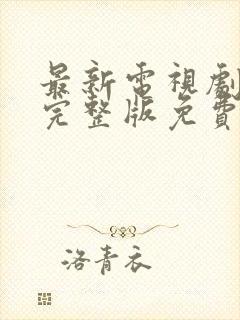 最新電視劇
完整版免費
洛青衣